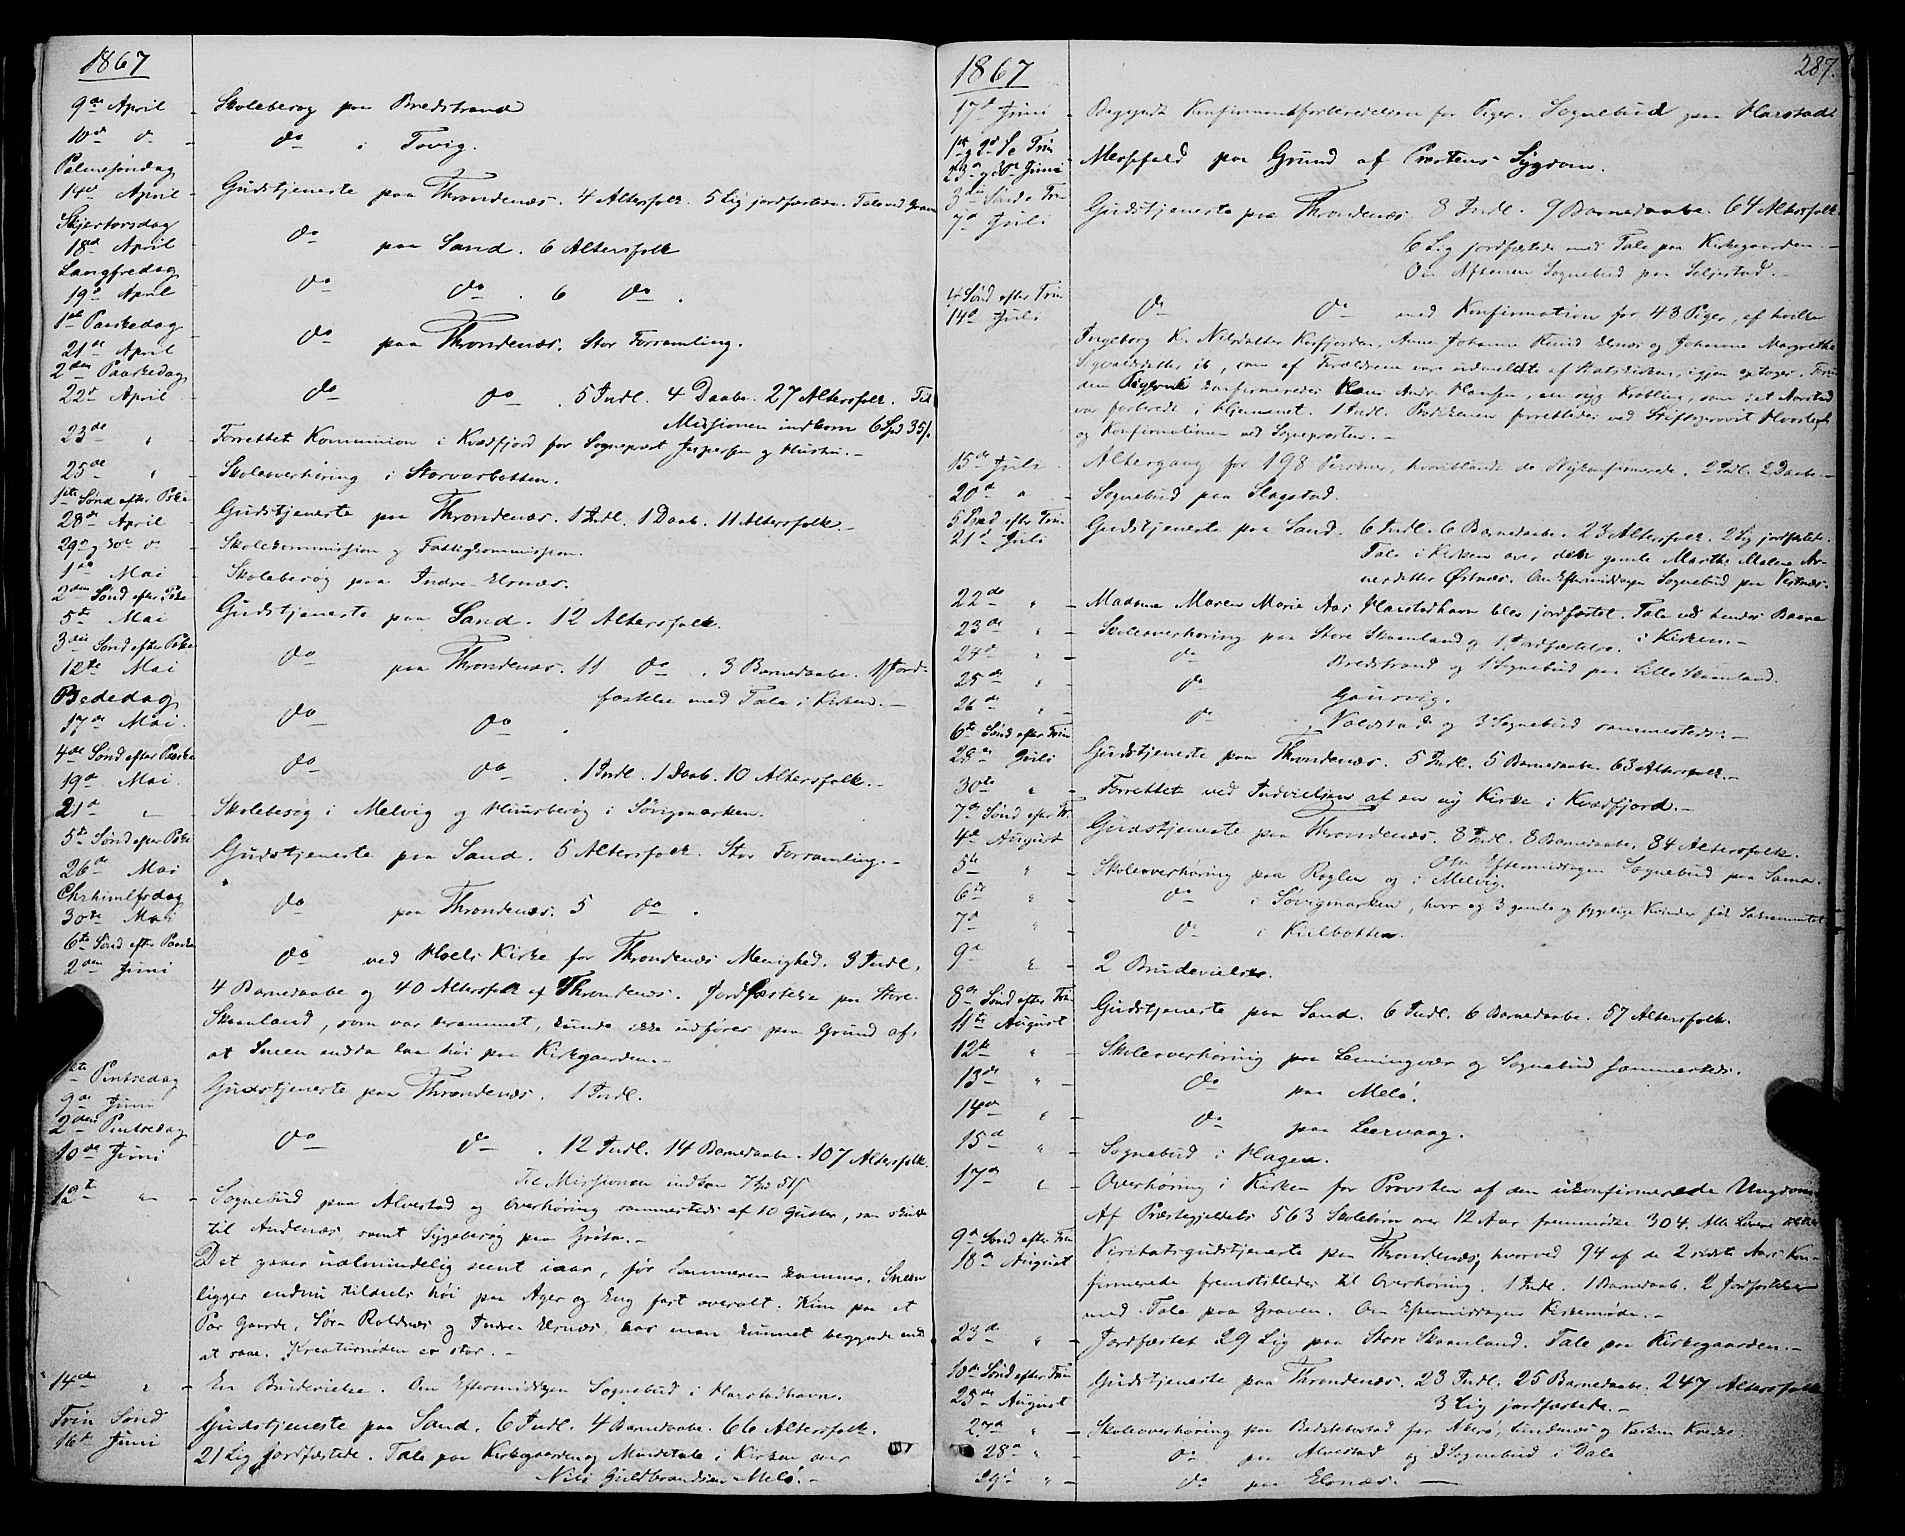 1867
9de April - Skolebesøg paa Bredstrand
10de do - do i Tovig.
Palmesøndag
14de April - Gudstjeneste paa Throndenæs. 4 Altersfolk. 5 Lig jordfæstede. Tale ved Graven
Skjertorsdag
18de April - do paa Sand. 6 Altersfolk
Langfredag
19de April do do. 6 do.
1ste Paaskedag
21de April do paa Throndenæs. Stor Forsamling.
2den Paaskedag
22de April do do. 5 Indl. 4 Daabe. 27 Altersfolk. Til
Missionen indkom 6 Spd 35 s.
23de " - Forrettet Kommunion i Kvædfjord for Sognepræst Jespersen og Hustru.-
25de " - Skoleoverhøring i Storvarbotten.
1ste Sønd efter Paaske
28de April - Gudstjeneste paa Throndenæs. 1 Indl. 1 Daab. 11 Altersfolk.-
29de og 30te do - Skolekommission og Fattigkommission.
1ste Mai - Skolebesøg paa Indre-Elgnæs.
2den Sønd efter Paaske
5te Mai Gudstjeneste paa Sand. 12 Altersfolk.
3die Sønd efter Paaske
12te Mai do paa Throndenæs. 11 do. 3 Barnedaabe. 1 Jord-
fæstelse med Tale i Kirken.-
Bededag
17de Mai. do do.
4de Sønd efter Paaske
19de Mai. do do. 1 Indl. 1 Daab. 10 Altersfolk.-
21de " - Skolebesøg i Melvig og Huusbesøg i Søvigmarken.
5te Sønd efter Paaske
26de Mai Gudstjeneste paa Sand. 5 Altersfolk. Stor Forsamling.-
Chrhimlfrdag
30te Mai do paa Throndenæs. 5 do.
6te Sønd efter Paaske
2den Juni do ved Hols Kirke for Throndenæs Menighed. 3 Indl.
4 Barnedaabe og 40 Altersfolk af Throndenæs. Jordfæstelse paa Store-
Skaanland, som var berammet, kunde ikke udføres paa Grund af,
at Sneen endda laa høi paa Kirkegaarden.-
1ste Pintsedag
9de Juni Gudstjeneste paa Throndenæs. 1 Indl.
2den Pintsedag
10de Juni do do. 12 Indl. 14 Barnedaabe. 107 Altersfolk.
Til Missionen indkom 7 Spd 51 s
12te " - Sognebud paa Alvestad og Overhøring sammesteds af 10 Gutter, som skulde
til Andenæs, samt Sygebesøg paa Grøtø.-
Det gaaer ualmindelig seent iaar, før Sommeren kommer. Sneen
ligger endnu tildeels høi paa Ager og Eng fast overalt. Kun paa et
Par Gaarde, Søra Roldnæs og Indre Elgnæs, har man kunnet begynde med
at saae. Kreaturnøden er stor.-
14de " - En Brudevielse. Om Eftermiddagen Sognebud i Harstadhavn.
Trin Sønd
16de Juni Gudstjeneste paa Sand. 6 Indl. 4 Barnedaabe. 66 Altersfolk.
21 Lig jordfæstede. Tale paa Kirkegaarden og Mindetale i Kirken over
Nils Guldbrandsen Melø.-
1867 287.
17de Juni - Begyndt Konfirmantforberedelsen for Piger. Sognebud paa Harstad.
1ste og 2den S e Trin
23de og 30te Juni Messefald paa Grund af Præstens Sygdom.
3die Sønd e Trin
7de Juli Gudstjeneste paa Throndenæs. 8 Indl. 9 Barnedaabe. 64 Altersfolk.
6 Lig jordfæstede med Tale paa Kirkegaarden.-
Om Aftenen Sognebud paa Seljestad.-
4 Sønd efter Trin
14de Juli do do med Konfirmation for 43 Piger, af hvilke
Ingeborg K. Nilsdatter Kasfjorden, Anne Johanne Elgnæs og Johanne Margrethe
Sigvaldsdatter ib, som af Forældrene vare udmeldte af Statskirken, igjen optoges. Foruden
dem konfirmeredes Hans Andr. Hansen, en syg Krøbling, som i et Aarstid
var forberedt i Hjemmet. 1 Indl. Prædikenen forrettedes ved Stiftsprovst
og Konfirmationen ved Sognepræsten.-
15de Juli Altergang for 198 Personer, hvoriblandt de Nykonfirmerede. 2 Indl. 2 Daabe.-
20de " - Sognebud paa Slagstad.
5 Sønd efter Trin
21de Juli Gudstjeneste paa Sand. 6 Indl. 6 Barnedaabe. 23 Altersfolk. 2 Lig jordfæstede.
Tale i Kirken over den gamle Marthe Malene Ar-
nesdatter Østnæs. Om Eftermiddagen Sognebud paa Vestnæs.
22de " - Madame Maren Marie Aas Harstadhavn blev jordfæstet. Tale ved hendes Baare
i Kirken.-
23de " - Skoleoverhøring paa Store Skaanland og 1 Jordfæstelse.
24de " - do Bredstrand og 1 Sognebud paa Lille Skaanland.
25de " - do Gausvig.
26de " - do Voldstad og 3 Sognebud sammesteds.-
6te Sønd efter Trin
28de Juli Gudstjeneste paa Throndenæs. 5 Indl. 5 Barnedaabe. 63 Altersfolk.-
30te " - Forrettet ved Indvielsen af en ny Kirke i Kvædfjord.-
7de Sønd efter Tr.
4de August Gudstjeneste paa Throndenæs. 8 Indl. 8 Barnedaabe. 84 Altersfolk.
Om Eftermiddagen Sognebud paa Sama.
5te " - Skoleoverhøring paa Rogla og i Melvig.
6te " - do i Søvigmarken, hvor og 3 gamle og sygelige Kvinder fik Sakramentet
7de " do i Kilbotten.
9de " - 2 Brudevielser.
8de Sønd efter Trin
11te August Gudstjeneste paa Sand. 6 Indl. 6 Barnedaabe. 57 Altersfolk.
12te " - Skoleoverhøring paa Lemingvær og Sognebud sammesteds.
13de " - do paa Melø.
14de " - do paa Leervaag.
15de " - Sognebud i Hagen.
17de " - Overhøring i Kirken for Provsten af den ukonfirmerede Ungdom
Af Præstegjeldets 563 Skolebørn over 12 Aar fremmødte 304. Alle Lærere
9de Sønd efter Trin
18de August Visitatsgudstjeneste paa Throndenæs, hvorved 94 af de 2 sidste Aars Kon-
firmerede fremstilledes til Overhøring. 1 Indl. 1 Barnedaab. 2 Jordfæstelser
med Tale paa Graven. Om Eftermiddagen Kirkemøde.-
23de " - Jordfæstet 29 Lig paa Store Skaanland. Tale paa Kirkegaarden.-
10de Sønd efter Trin
25de August Gudstjeneste paa Throndenæs. 23 Indl. 25 Barnedaabe. 247 Altersfolk
3 Lig jordfæstede.-
27de " - Skoleoverhøring paa for og Kreds.
28de " - do paa Alvestad og 3 Sognebud i Dale
29de " - do paa Elgnæs.-